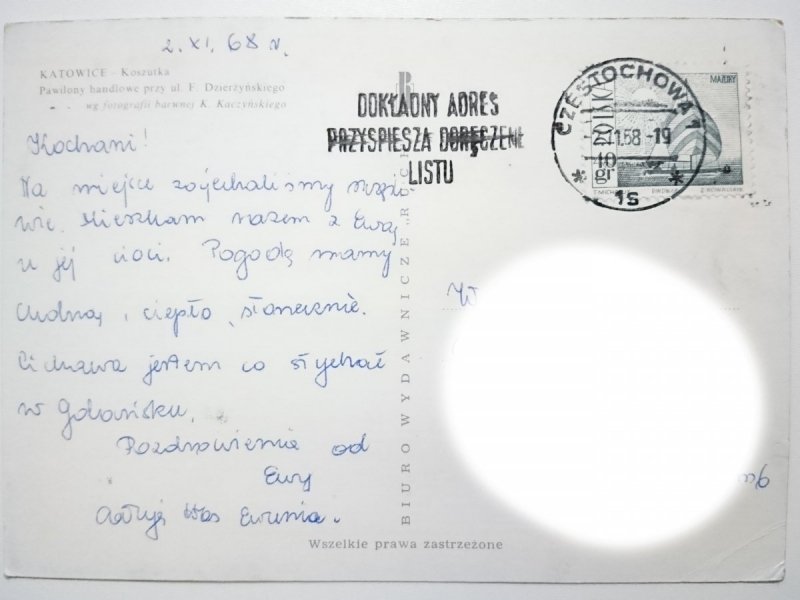 2. XI. 68 r.
KATOWICE – Koszutka
Pawilony handlowe przy ul. F. Dzierżyńskiego
wg fotografii barwnej K. Kaczyńskiego
Kochani!
Na miejsce zajechaliśmy szczęśli
wie. Mieszkam razem z Ewą
u jej cioci. Pogodę mamy
cudną, ciepło, słonecznie.
Ciekawa jestem co słychać
w Gdańsku.
Pozdrowienia od
Ewy
Całuję Was Ewunia.
BIURO WYDAWNICZE „R CH
DOKŁADNY ADRES
PRZYSPIESZA DORĘCZENIE
LISTU
CZĘSTOCHOWA 1
2.11.68-19
1s
40
gr
MAZURY
W
Wszelkie prawa zastrzeżone